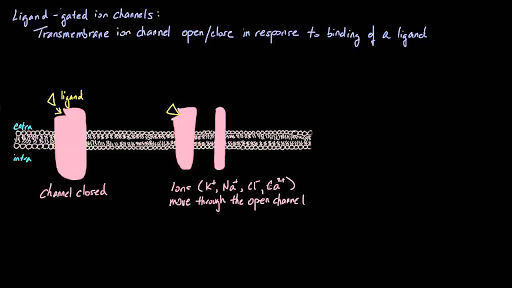 Ligand-gated ion channels:
Transmembrane ion channel open/close in response to binding of a ligand
ligand
extra
intra
channel closed
Ions (K⁺, Na⁺, Cl⁻, Ca²⁺)
move through the open channel